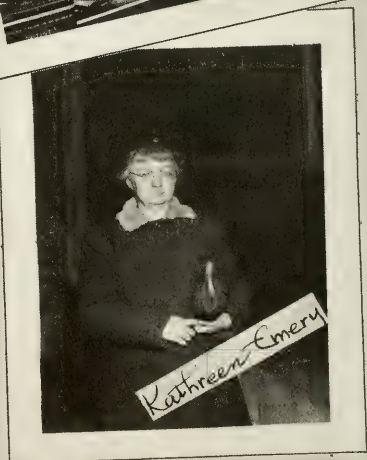 Kathreen Emery